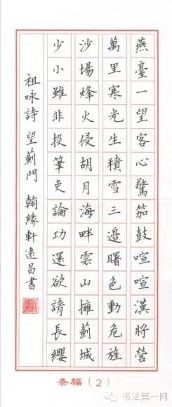 燕臺一望客心驚笳鼓喧喧漢將營
萬里寒光生積雪三邊曙色動危旌
沙場烽火侵胡月海畔雲山擁薊城
少小雖非投筆吏論功還欲請長纓
祖咏詩 望薊門 翰緣軒遠昌書
条幅（2）
书法第一网